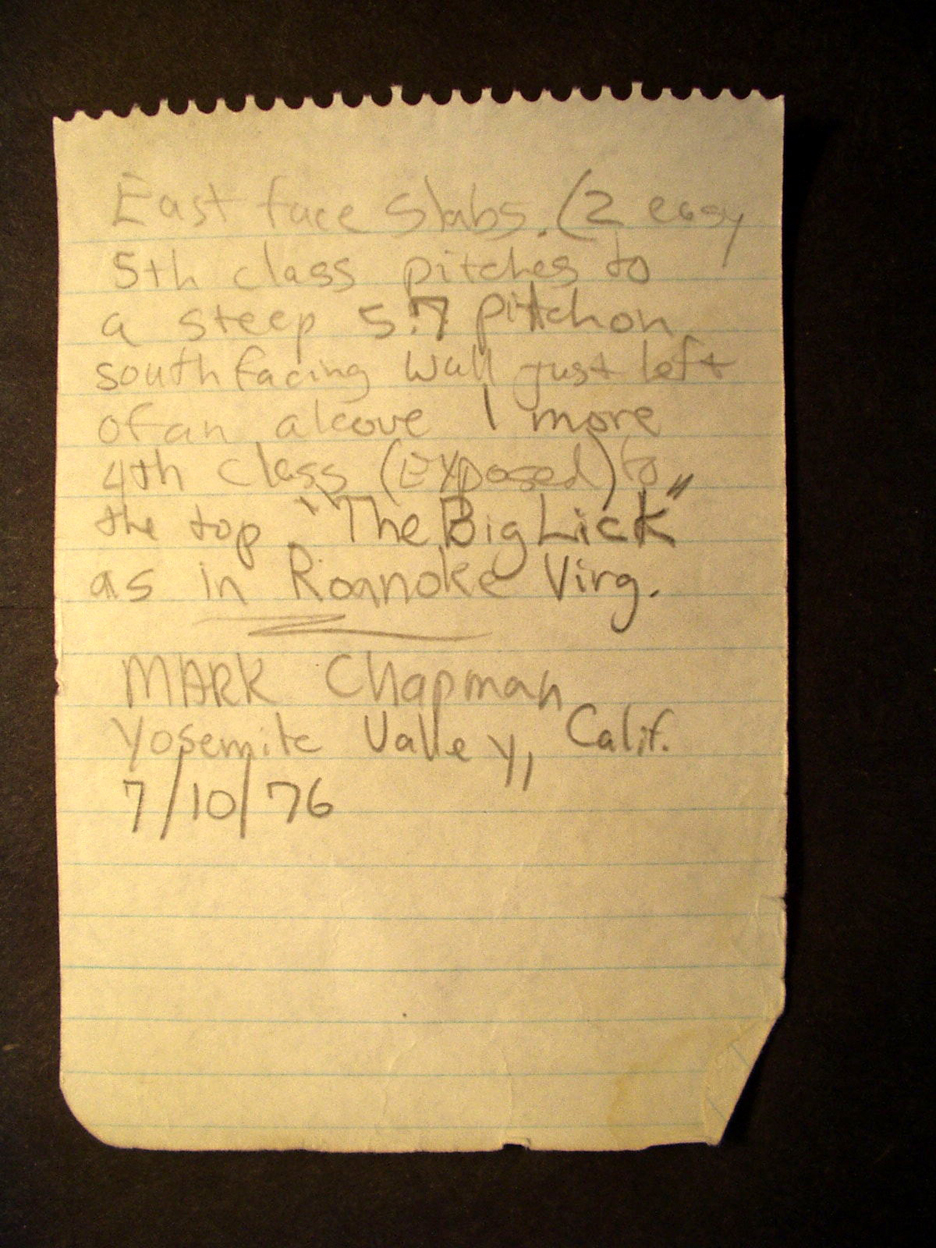 East face Slabs. (2 easy
5th class pitches to
a steep 5.7 pitch on
south facing wall just left
of an alcove 1 more
4th class (Exposed) to
the top "The Big Lick"
as in Roanoke Virg.
MARK Chapman
Yosemite Valley, Calif.
7/10/76